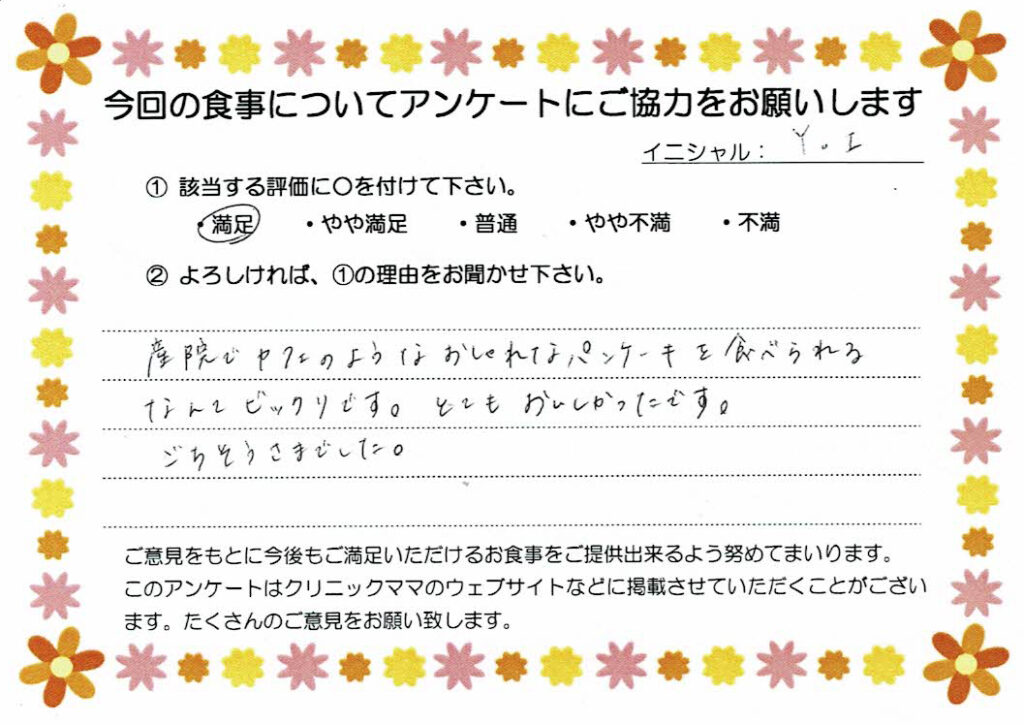 今回の食事についてアンケートにご協力をお願いします
イニシャル： Y.I
① 該当する評価に〇を付けて下さい。
・満足 ・やや満足 ・普通 ・やや不満 ・不満
② よろしければ、①の理由をお聞かせ下さい。
産院でカフェのようなおしゃれなパンケーキを食べられる
なんてビックリです。とてもおいしかったです。
ごちそうさまでした。
ご意見をもとに今後もご満足いただけるお食事をご提供出来るよう努めてまいります。
このアンケートはクリニックママのウェブサイトなどに掲載させていただくことがござい
ます。たくさんのご意見をお願い致します。